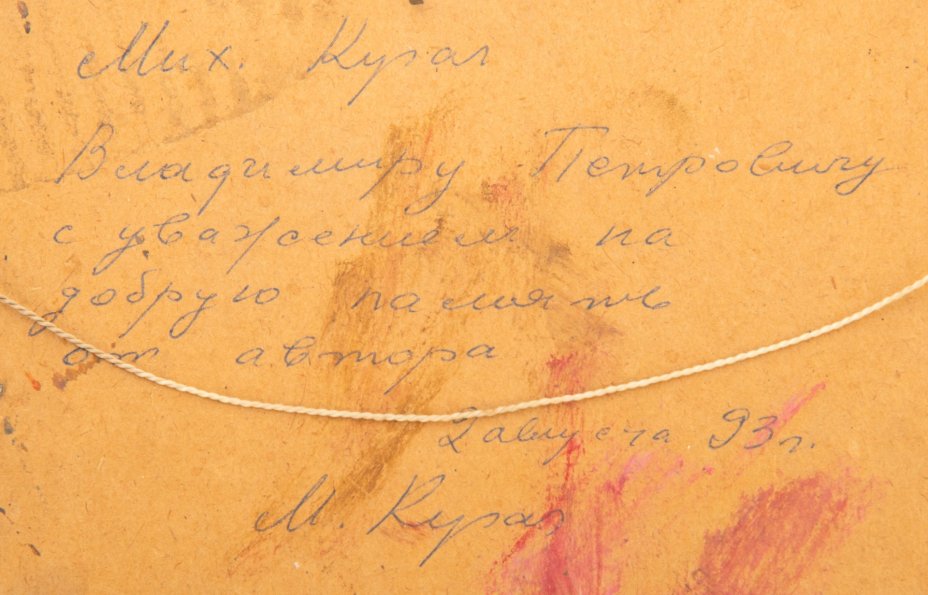 Мих. Кугач
Владимиру Петровичу
с уважением на
добрую память
от автора
2 августа 93 г.
М. Кугач